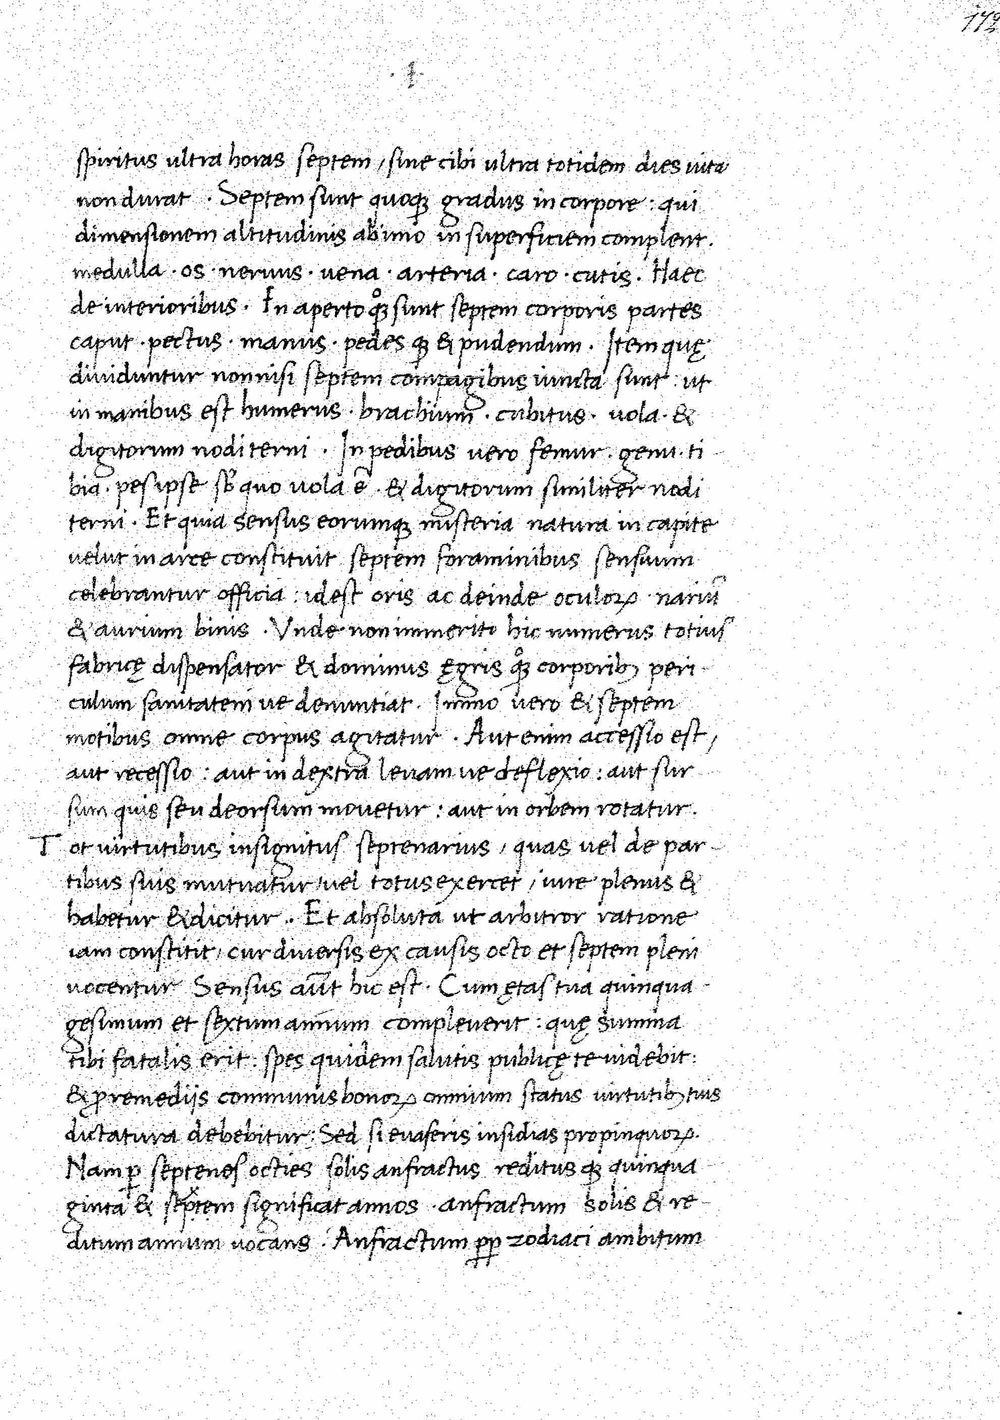 179
· 1 ·
spiritus ultra horas septem, sine cibi ultra totidem dies uita
non durat · Septem sunt quoq; gradus in corpore : qui
dimensionem altitudinis ab imo in superficiem complent.
medulla · os · neruus · uena · arteria · caro · cutis. Haec
de interioribus. In aperto q̊q; sunt septem corporis partes
caput · pectus · manus · pedes q; & pudendum · Item quę
diuiduntur nonnisi septem compagibus iuncta sunt : ut
in manibus est humerus · brachium · cubitus · uola · &
digitorum nodi terni · In pedibus uero femur · genu · ti
bia · pes ipse sb quo uola ē · & digitorum similiter nodi
terni · Et quia sensus eorumq; misteria natura in capite
uelut in arce constituit septem foraminibus sensuum
celebrantur officia : idest oris ac deinde oculoꝝ · nariū
& aurium binis · Vnde non immerito hic numerus totius
fabricę dispensator & dominus ęgris q̊q; corporibꝫ peri-
culum sanitatem ue denuntiat. Immo uero & septem
motibus omne corpus agitatur · Aut enim accessio est,
aut recessio : aut in dextra leuam ue deflexio : aut sur
sum quis seu deorsum mouetur : aut in orbem rotatur.
Tot uirtutibus insignitus septenarius, quas uel de par-
tibus suis mutuatur, uel totus exercet, iure plenus &
habetur & dicitur · Et absoluta ut arbitror ratione
iam constitit, cur diuersis ex causis octo et septem pleni
uocentur Sensus aūt hic est · Cum ętas tua quinqua-
gesimum et sextum annum compleuerit : quę summa
tibi fatalis erit : spes quidem salutis publicę te uidebit :
& ꝓ remedijs communis bonoꝝ omnium status uirtutibꝫ tuis
dictatura debebitur : Sed si euaseris insidias propinquoꝝ.
Nam ꝑ septenos octies solis anfractus reditus q; quinqua
ginta & septem significat annos · anfractum solis & re-
ditum annum uocans · Anfractum ꝑꝑ zodiaci ambitum